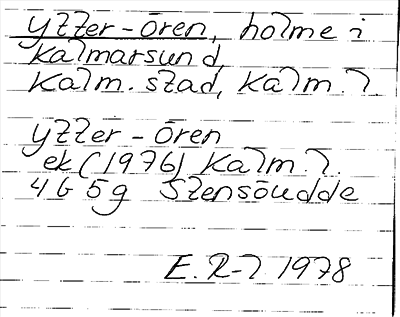 Ytter-Ören, holme i
Kalmarsund,
Kalm. stad, Kalm. l
Ytter-Ören
ek (1976) Kalm. l.
4 G 5g Stensöudde
E. R-l 1978